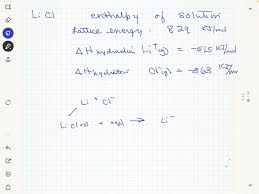 LiCl enthalpy of solution
lattice energy: 829 KJ/mol
ΔHhydration Li⁺(g) = -515 KJ/mol
ΔHhydration Cl⁻(g) = -363 KJ/mol
Li⁺ Cl⁻
LiCl(s) + aq → Li⁻